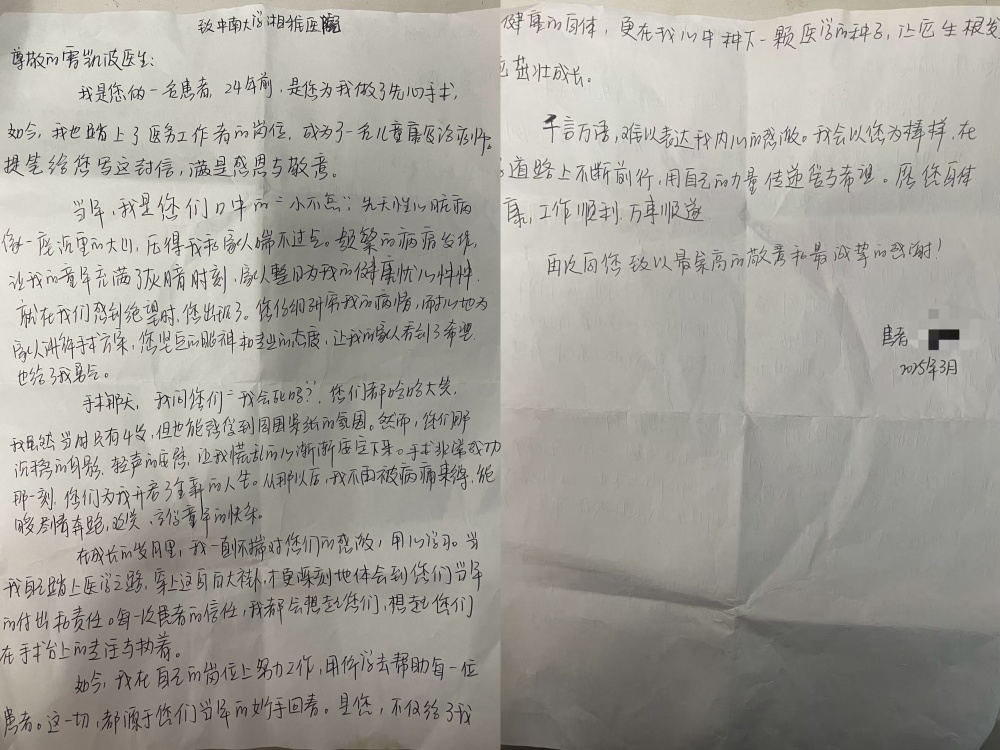 致中南大学湘雅医院
尊敬的曹凯波医生:
我是您的一名患者,24年前,是您为我做了先心手术,
如今,我也踏上了医务工作者的岗位,成为了一名儿童康复治疗师。
提笔给您写这封信,满是感恩与敬意。
当年,我是您们口中的“小不点”,先天性心脏病
像一座沉重的大山,压得我和家人喘不过气。频繁的病病发作,
让我的童年充满了灰暗时刻,家人整日为我的健康忧心忡忡.
就在我们感到绝望时,您出现了。您仔细研究我的病情,耐心地为
家人讲解手术方案,您坚定的眼神和专业的态度,让我的家人看到了希望.
也给了我勇气。
手术那天,我问您们“我会死吗?”,您们都哈哈大笑,
我虽然当时只有4岁,但也能感受到周围紧张的氛围。然而,您们那
沉稳的身影,轻声的安慰,让我慌乱的心渐渐安定下来。手术非常成功
那一刻,您们为我开启了全新的人生。从那以后,我不再被病痛束缚,能
够尽情奔跑,欢笑,享受童年的快乐。
在成长的岁月里,我一直怀揣对您们的感激,用心学习。当
我自己踏上医学之路,穿上这身白大褂,才更深刻地体会到您们当年
的付出和责任。每一次患者的信任,我都会想起您们,想起您们
在手术台上的专注与执着。
如今,我在自己的岗位上努力工作,用所学去帮助每一位
患者。这一切,都源于您们当年的妙手回春。是您,不仅给了我
健康的身体,更在我心中种下一颗医学的种子,让它生根发
茁壮成长。
千言万语,难以表达我内心的感激。我会以您为榜样,在
道路上不断前行,用自己的力量传递爱与希望。愿您身体
康,工作顺利,万事顺遂
再次向您致以最崇高的敬意和最诚挚的感谢!
患者
2025年3月